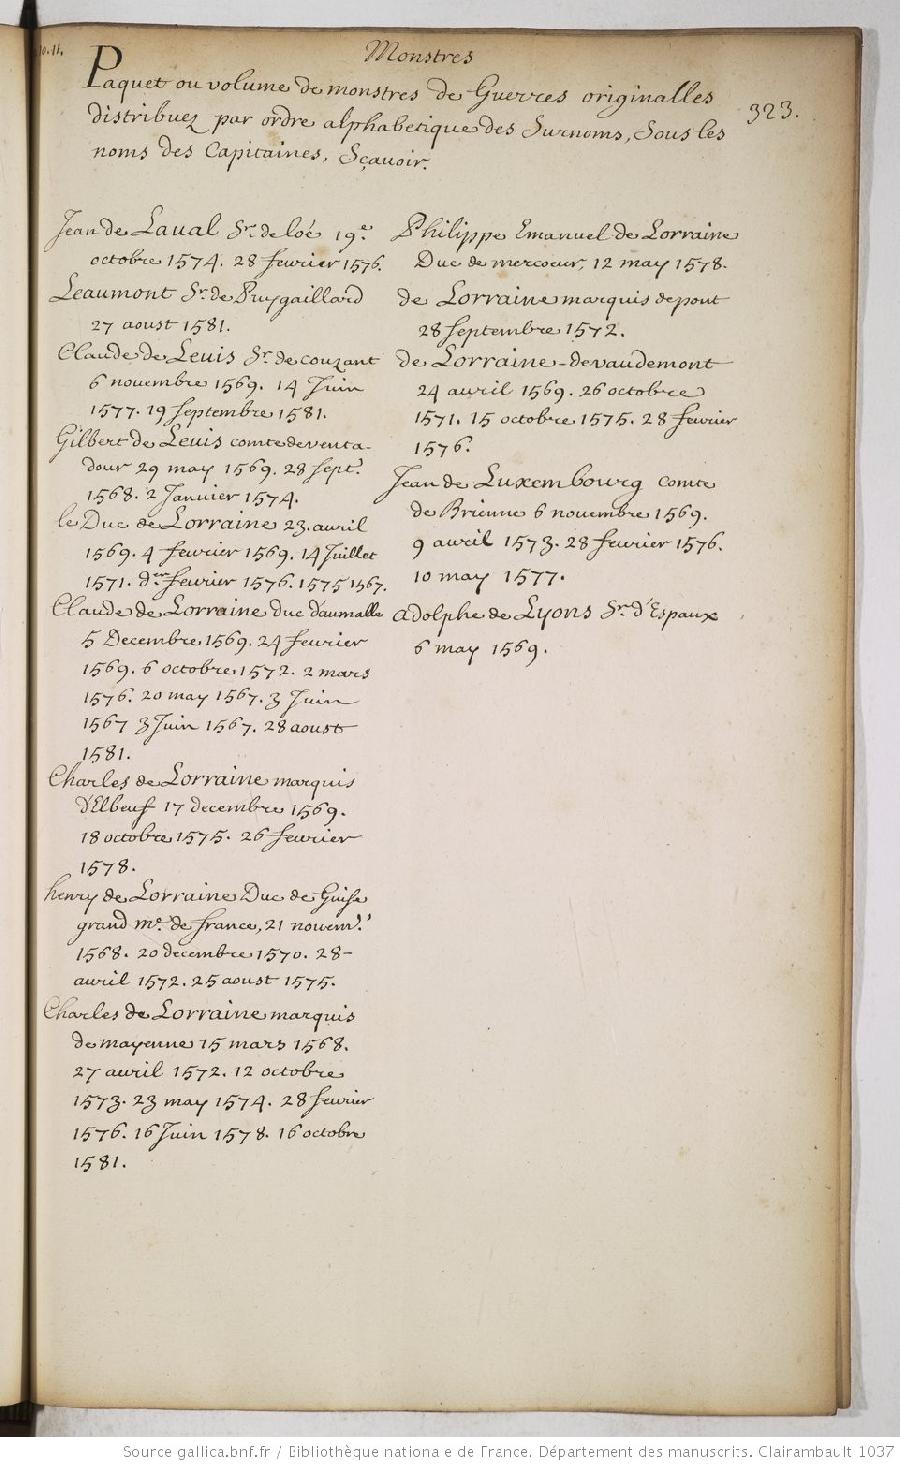 10.11.
Monstres
Paquet ou volume de monstres de Guerres originalles
323.
distribuez par ordre alphabetique des Surnoms, Sous les
noms des Capitaines, Sçavoir.
Jean de Laual Sr. de loé 19e.
octobre 1574. 28 feurier 1576.
Leaumont Sr. de Puygaillard
27 aoust 1581.
Claude de Leuis Sr. de couzant
6 nouembre 1569. 14 Juin
1577. 19 Septembre 1581.
Gilbert de Leuis comte de venta-
dour 29 may 1569. 28 Sept.
1568. 2 Januier 1574.
le Duc de Lorraine 23. auril
1569. 4 feurier 1569. 14 Juillet
1571. der. feurier 1576. 1575 1567.
Claude de Lorraine duc d'aumalle
5 Decembre 1569. 24 feurier
1569. 6 octobre 1572. 2 mars
1576. 20 may 1567. 3 Juin
1567 3 Juin 1567. 28 aoust
1581.
Charles de Lorraine marquis
d'Elbeuf 17 decembre 1569.
18 octobre 1575. 26 feurier
1578.
henry de Lorraine Duc de Guise
grand me. de france, 21 nouem.
1568. 20 decembre 1570. 28-
auril 1572. 25 aoust 1575.
Charles de Lorraine marquis
de mayenne 15 mars 1568.
27 auril 1572. 12 octobre
1573. 23 may 1574. 28 feurier
1576. 16 Juin 1578. 16 octobre
1581.
Philippe Emanuel de Lorraine
Duc de mercoeur, 12 may 1578.
de Lorraine marquis de pont
28 Septembre 1572.
de Lorraine-de vaudemont
24 auril 1569. 26 octobre
1571. 15 octobre 1575. 28 feurier
1576.
Jean de Luxembourg comte
de Brienne 6 nouembre 1569.
9 auril 1573. 28 feurier 1576.
10 may 1577.
adolphe de Lyons Sr. d'Espaux
6 may 1569.
Source gallica.bnf.fr / Bibliothèque nationale de France. Département des manuscrits. Clairambault 1037